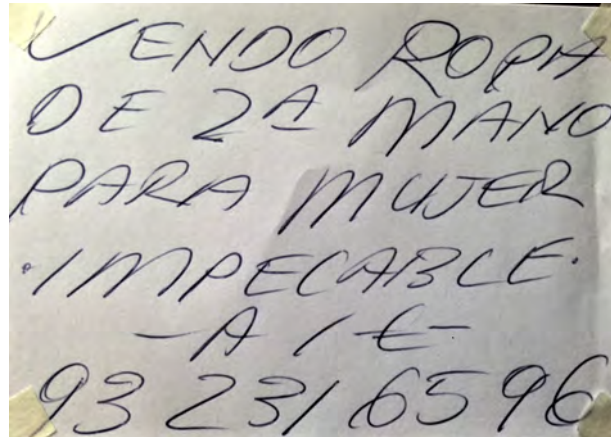 VENDO ROPA
DE 2ª MANO
PARA MUJER
·IMPECABLE·
-A 1 €-
93 231 65 96